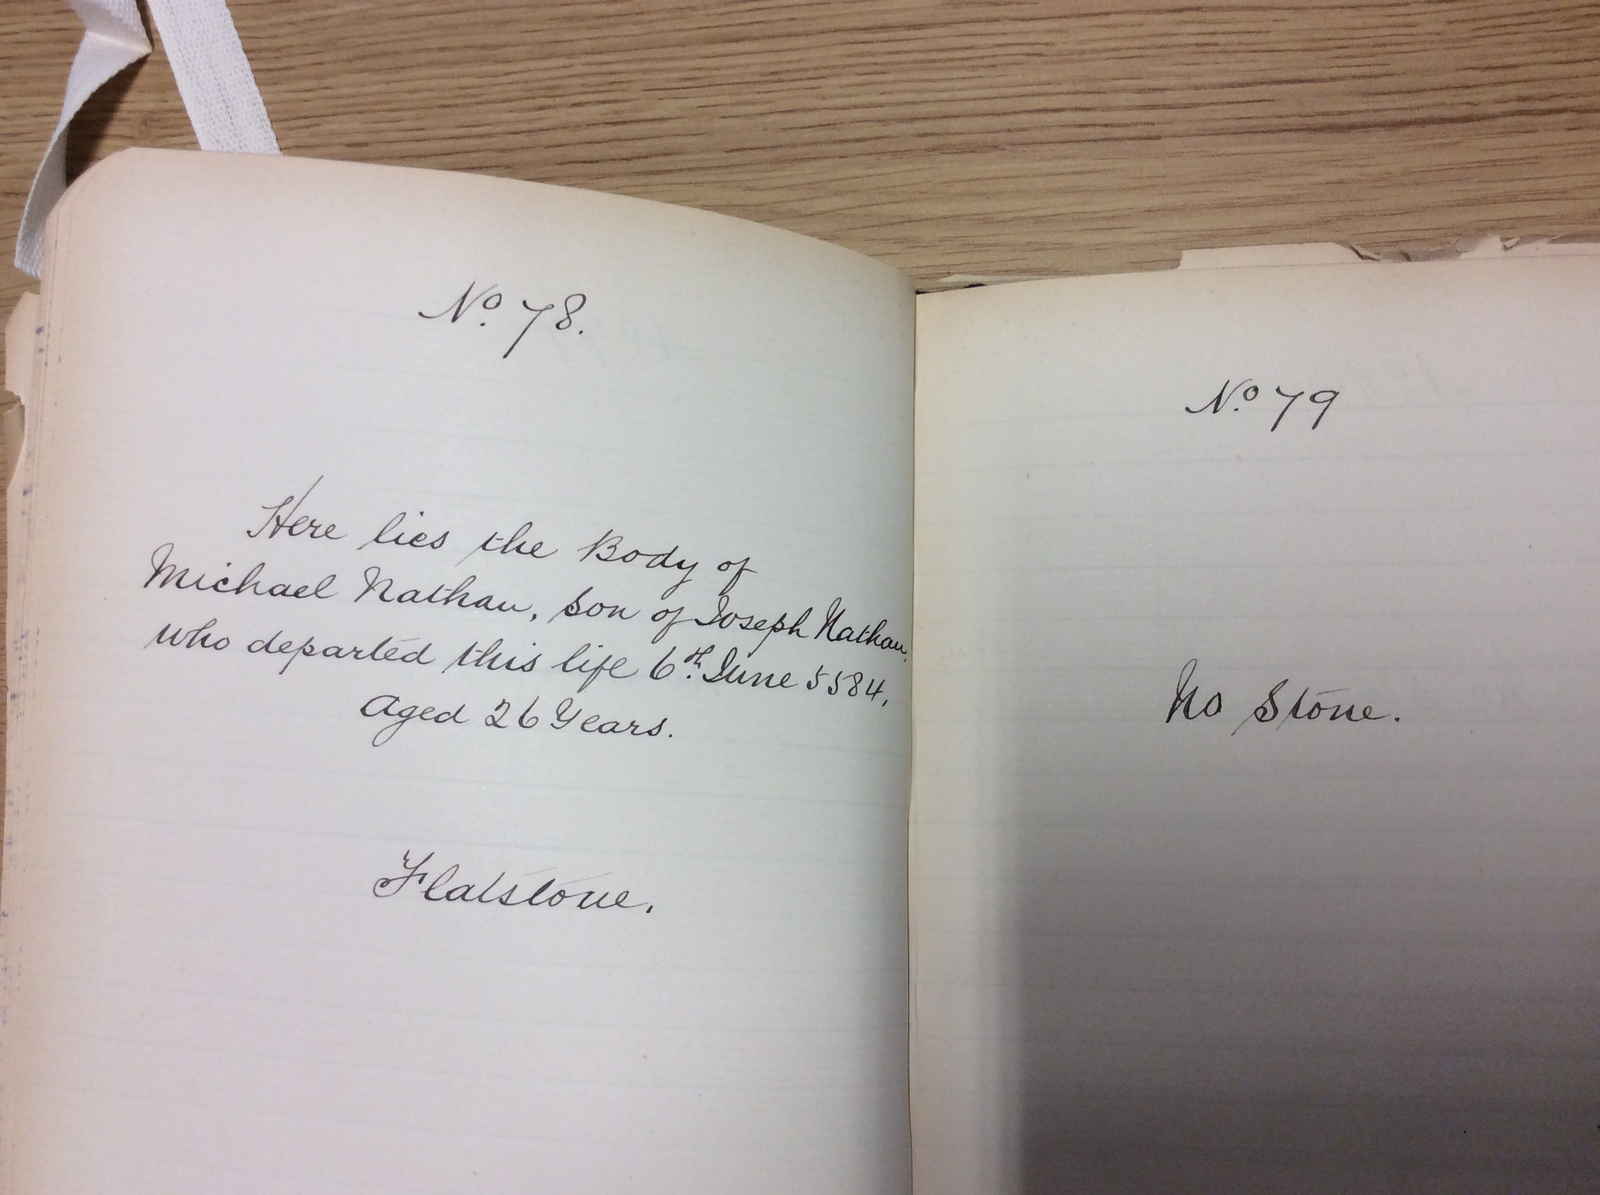 No. 78.
Here lies the Body of
Michael Nathan, son of Joseph Nathan.
who departed this life 6th. June 5584,
Aged 26 Years.
Flatstone.
No. 79
No Stone.